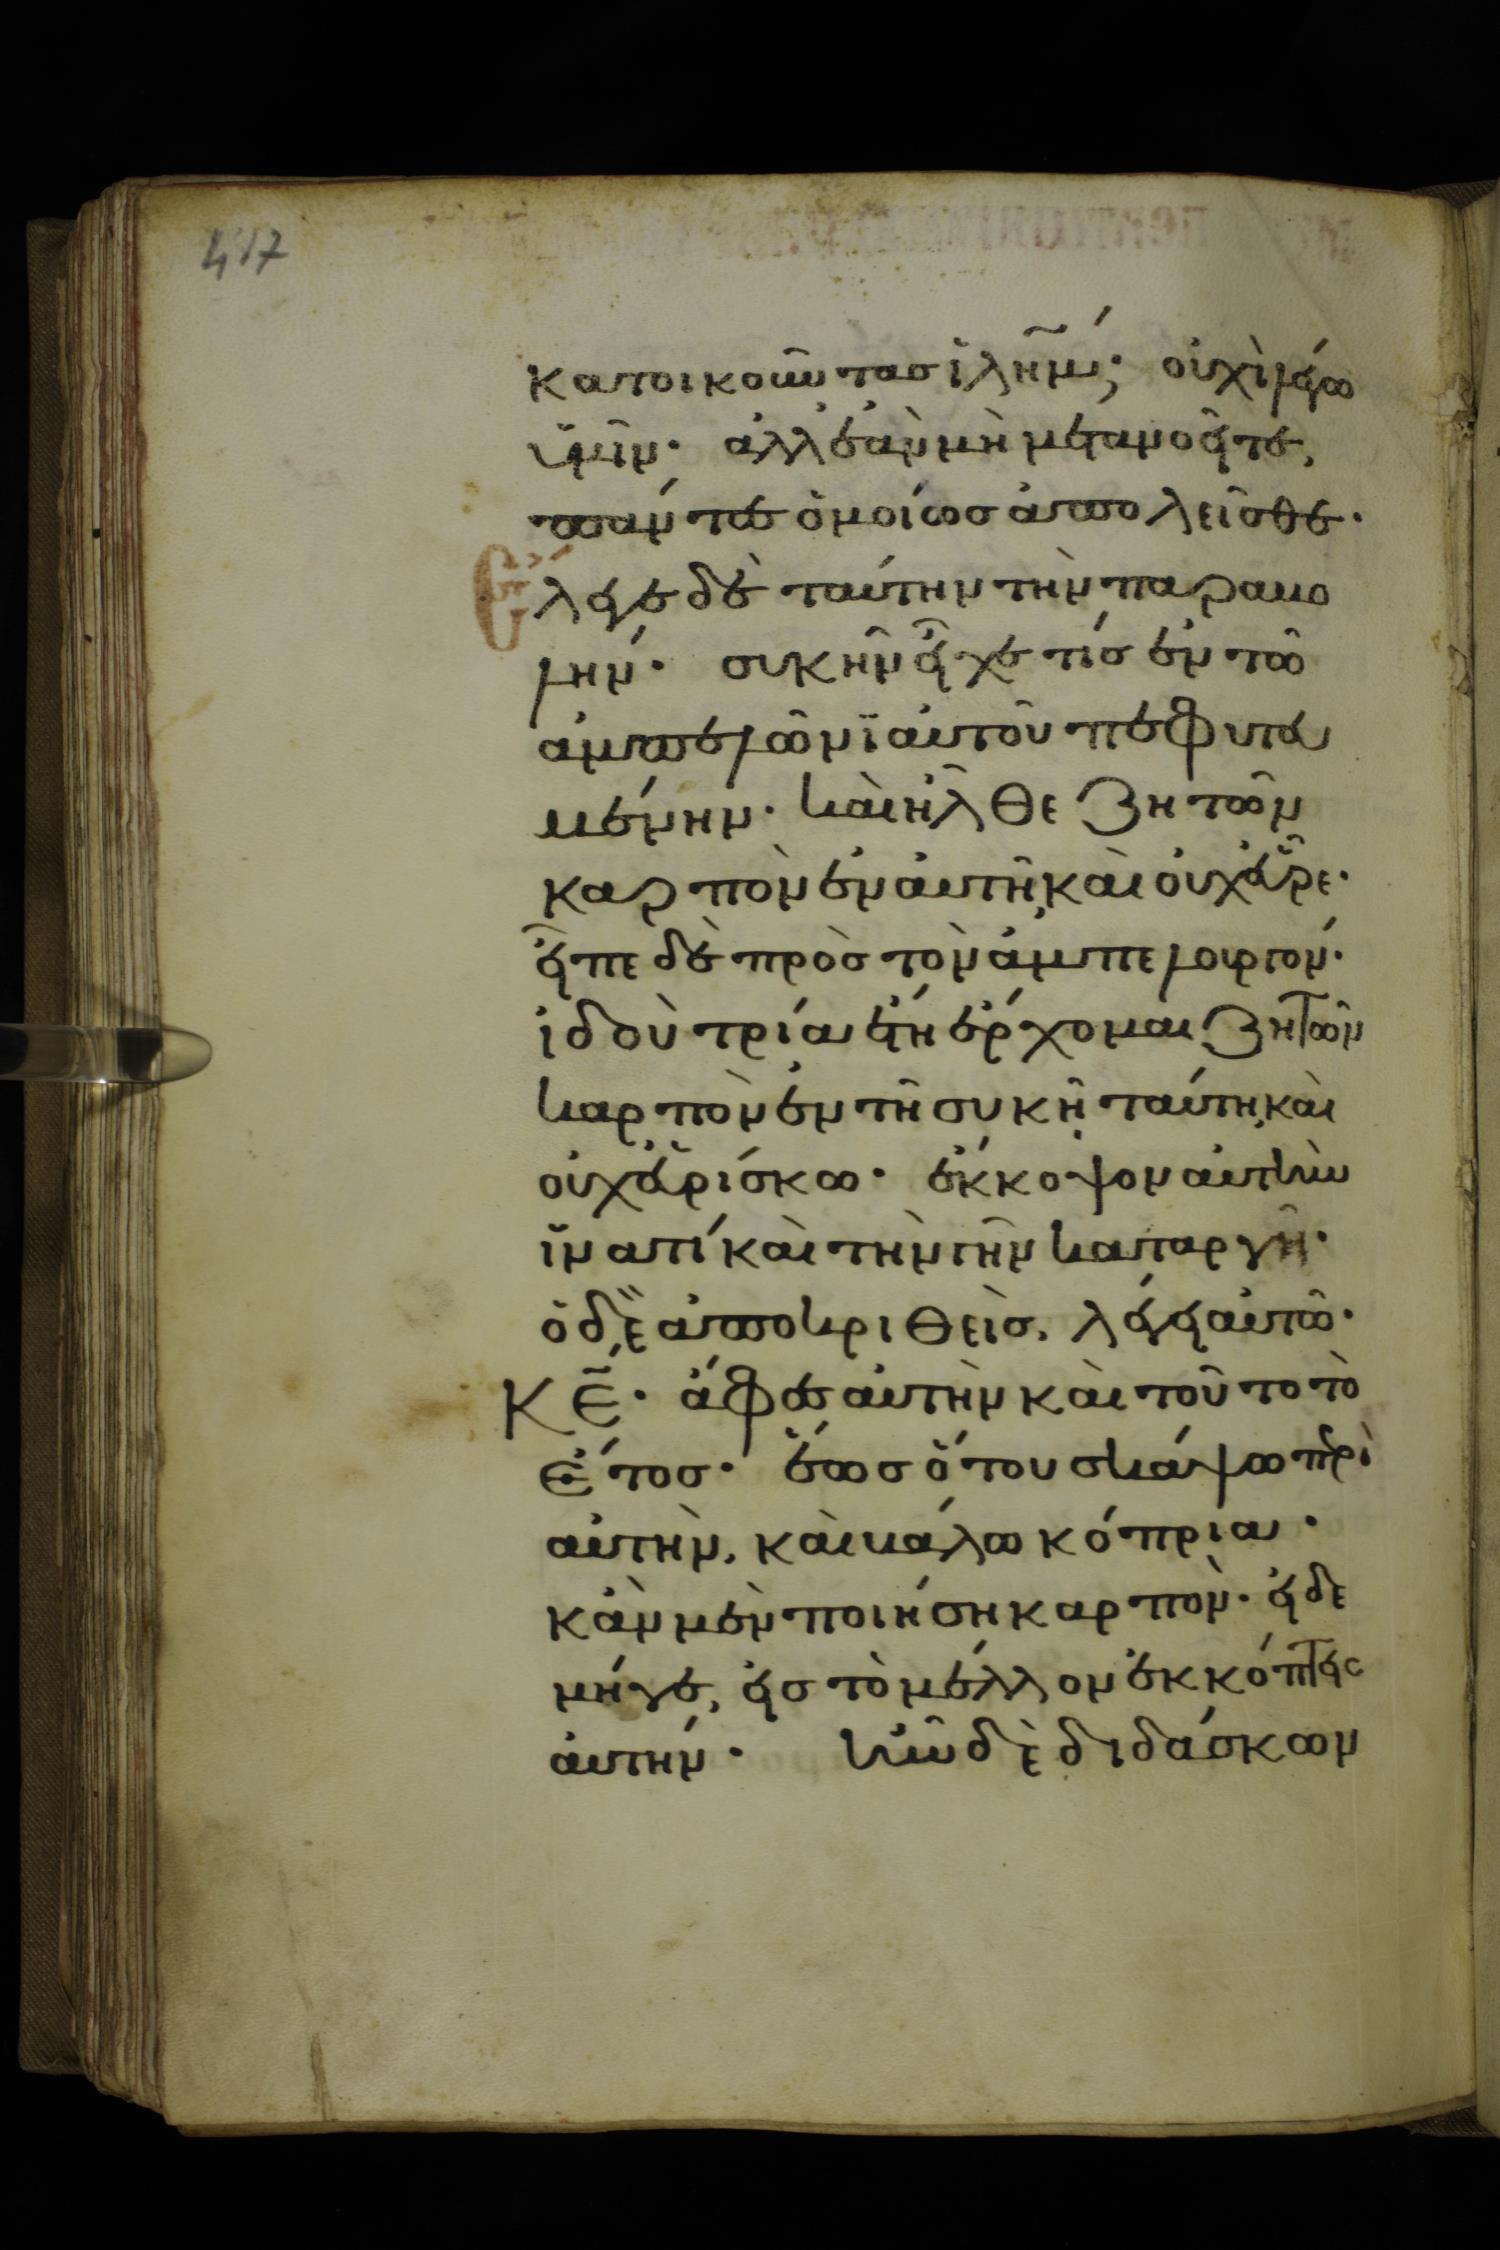 417
κατοικοῦντασ ἰ̈λῆμ́; οὐχὶ λέγω
ὑ̈μῖν· ἀλλ ἐὰν μὴ μετανοεῖτε,
πάντεσ ὁμοίωσ ἀπολεῖσθε·
Ἔλεγε δὲ ταύτην τὴν παραβο
λήν· συκῆν εἶχέ τίσ ἐν τῶ
ἀμπελῶνϊ αὐτοῦ πεφυτευ
μένην· καὶ ἦλθε ζητῶν
καρπὸν ἐν αὐτῆ, καὶ οὐχ εὗρε·
εἶπε δὲ πρὸσ τὸν ἀμπελουργόν·
ἰδοὺ τρία ἔτη ἔρχομαι ζητῶν
καρπὸν ἐν τῆ συκῆ ταύτη, καὶ
οὐχ εὑρίσκω· ἔκκοψον αὐτὴν
ἵ̈νατί καὶ τὴν γῆν καταργεῖ·
ὁ δὲ ἀποκριθεὶσ, λέγει αὐτῶ·
ΚΕ̄· ἄφεσ αὐτὴν καὶ τοῦτο τὸ
ἔτοσ· ἕωσ ὅτου σκάψω περὶ
αὐτὴν, καὶ βάλω κόπρια·
κἀν μὲν ποιήση καρπὸν· εἰ δε
μήγε, εἰσ τὸ μέλλον ἐκκόπτεισ
αὐτήν· ἦν δὲ διδάσκων